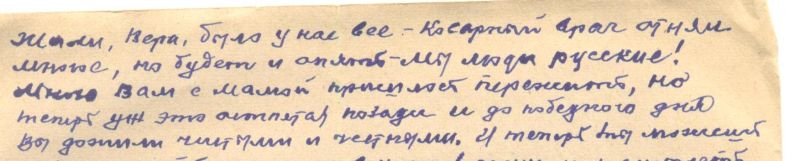 Жили, Вера, было у нас все - Косарный враг отнял
многое, но будет и опять - мы люди русские!
Много Вам с мамой пришлось пережить, но
теперь уж это остается позади и до победного дня
Вы дожили чистыми и честными. И теперь Вы можешь